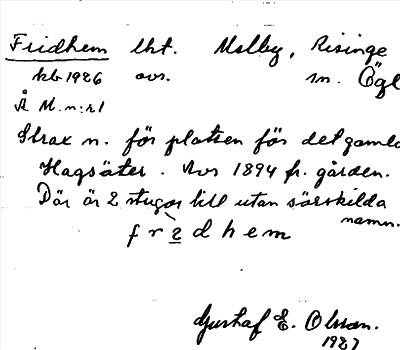 Fridhem lht. Malby, Risinge
kb 1926 avs. sn. Ögl
Å M. n:r 1
Strax n. för platsen för det gamla
Hagsäter. Avs 1894 fr. gården.
Där är 2 stugor till utan särskilda
namn.
fridhem
Gustaf E. Olsson.
1927